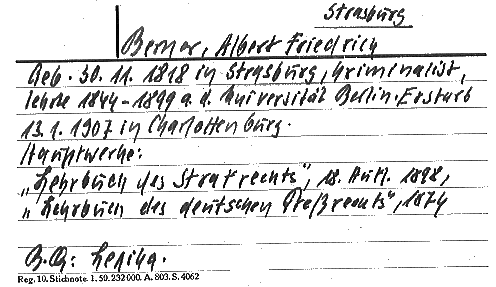 Strasburg
Berner, Albert Friedrich
Geb. 30. 11. 1818 in Strasburg, Kriminalist,
lehrte 1844-1899 a. d. Universität Berlin. Erstarb
13.1.1907 in Charlottenburg.
Hauptwerke:
„Lehrbuch des Strafrechts", 18. Aufl. 1898,
„Lehrbuch des deutschen Preßrechts", 1874
Reg. 10. Stichnote. 1. 50. 232000. A. 803. S. 4062